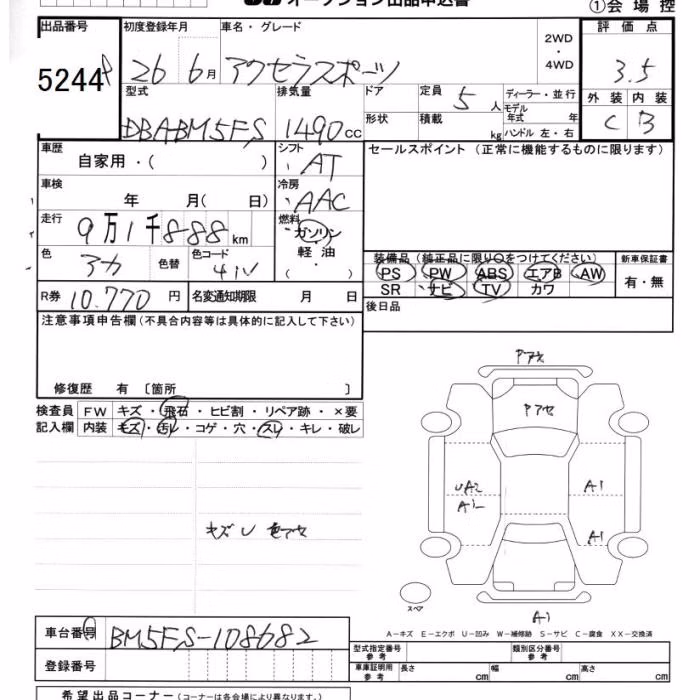 オークション出品申込書
①会場控
出品番号 初度登録年月 車名・グレード 2WD・4WD 評価点
5244 26 6月 アクセラスポーツ 3.5
型式 排気量 ドア 定員 5人 ディーラー・並行 外装 内装
DBA-BM5FS 1490cc 形状 積載 kg モデル年式 年 C B
ハンドル 左・右
車歴 シフト セールスポイント (正常に機能するものに限ります)
自家用・( ) AT
車検 冷房
年 月( 日) AAC
走行 燃料
9万1千888km ガソリン・軽油・( )
色 色替 色コード
アカ 41V
装備品 (純正品に限り○をつけてください) 新車保証書
PS PW ABS エアB AW 有・無
SR ナビ TV カワ
R券 10.770円 名変通知期限 月 日
後日品
注意事項申告欄 (不具合内容等は具体的に記入して下さい)
修復歴 有 〔箇所 〕
検査員 FW キズ・飛石・ヒビ割・リペア跡・×要
記入欄 内装 キズ・汚レ・コゲ・穴・スレ・キレ・破レ
Pアセ
Pアセ
UA2 A1
A1
キズ U 色アセ
スペア
A1
A－キズ E－エクボ U－凹み W－補修跡 S－サビ C－腐食 XX－交換済
車台番号 BM5FS-108682
登録番号
型式指定番号 参考 類別区分番号 参考
車庫証明用 参考 長さ cm 幅 cm 高さ cm
希望出品コーナー (コーナーは各会場により異なります。)